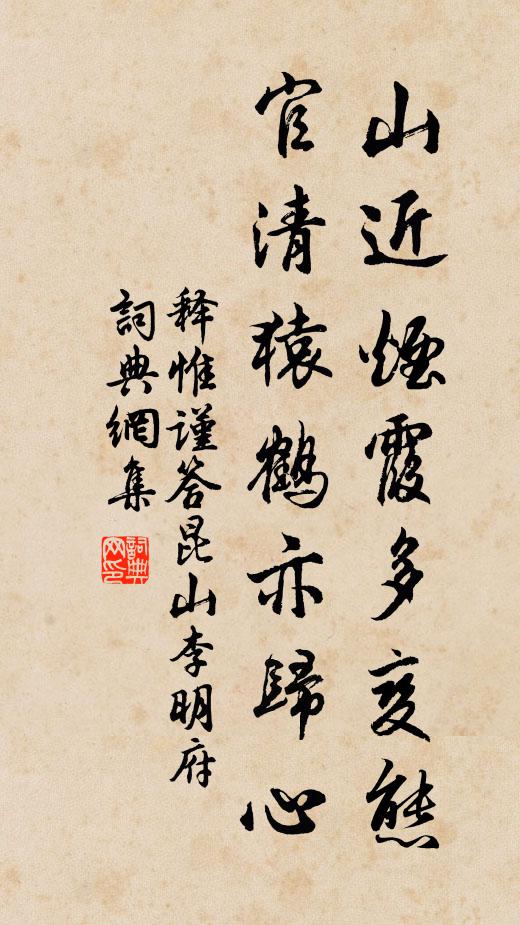 山近煙霞多变態
官清猿鶴亦歸心
释惟谨答昆山李明府
詞典網集
詞典网印